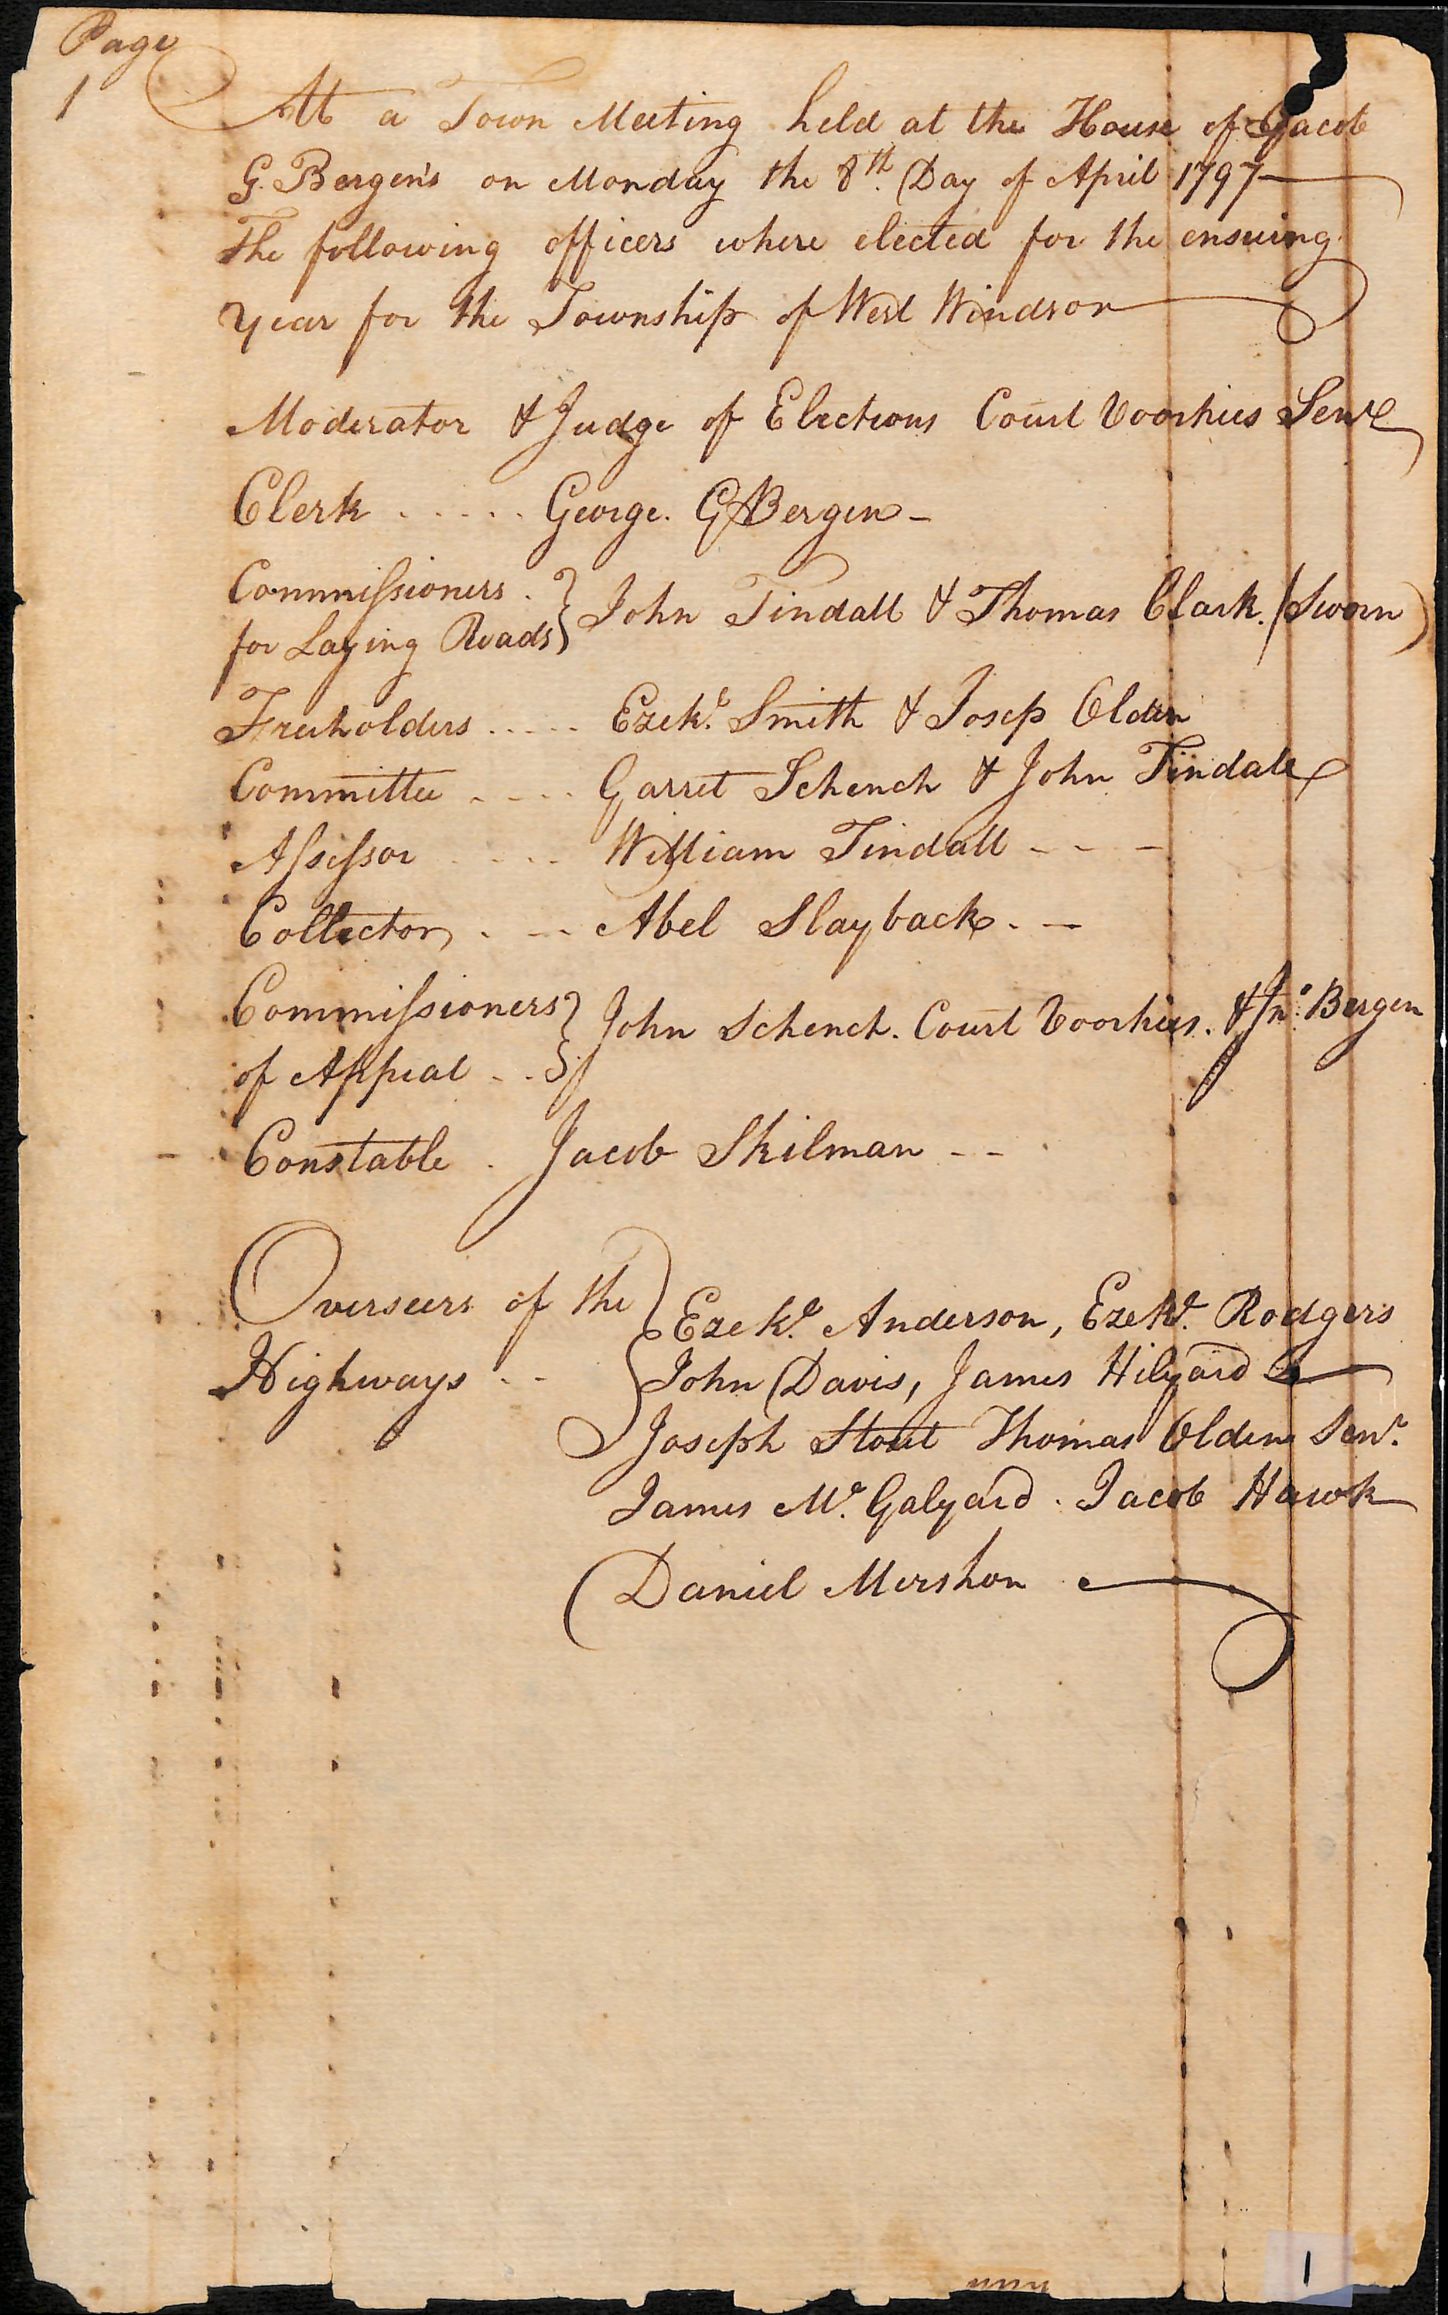 Page
1
At a Town Meeting held at the House of Jacob
G. Bergen's on Monday the 8th. Day of April 1797
The following officers where elected for the ensuing
Year for the Township of West Windsor
Moderator & Judge of Elections Court Voorhies Senr
Clerk ..... George. G Bergen -
Commiſsioners .
for Laying Roads } John Tindall & Thomas Clark. (Sworn)
Freeholders ..... Ezekl. Smith & Josep Olden
Committee .... Garret Schench & John Tindall
Aſseſsor .... William Tindall - - -
Collector . - - Abel Slayback . -
Commiſsioners
of Appeal .. } John Schenck. Court Voorhies. & Jno. Bergen
Constable . Jacob Skilman - -
Overseers of the } Ezekl. Anderson, Ezekl. Rodgers
Highways - - John Davis, James Hilyard
Joseph Stout Thomas Olden Senr.
James Mc. Galyard . Jacob Hawk
Daniel Mershon
1